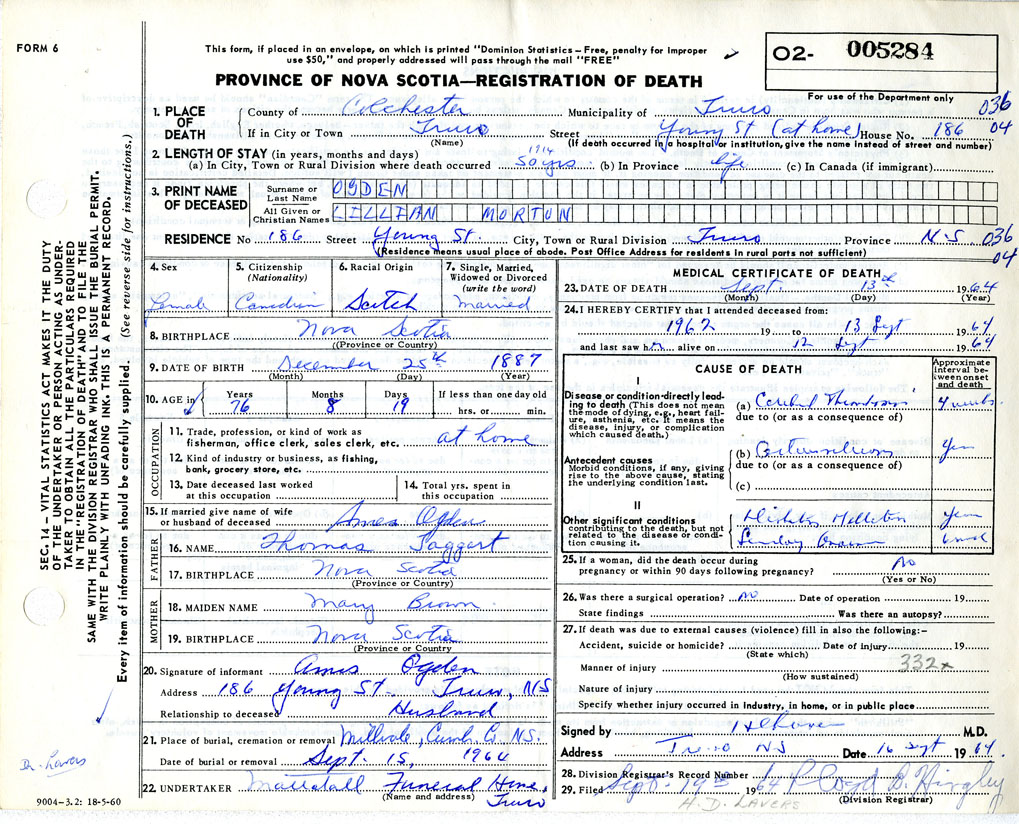 FORM 6
This form, if placed in an envelope, on which is printed "Dominion Statistics – Free, penalty for improper
use $50," and properly addressed will pass through the mail "FREE"
PROVINCE OF NOVA SCOTIA—REGISTRATION OF DEATH
02- 005284
For use of the Department only
1. PLACE OF DEATH County of Colchester Municipality of Truro 036
If in City or Town Truro Street Young St (at home) House No. 186 04
(Name) (If death occurred in a hospital or institution, give the name instead of street and number)
2. LENGTH OF STAY (in years, months and days) 1914
(a) In City, Town or Rural Division where death occurred 50 yrs (b) In Province life (c) In Canada (if immigrant)
3. PRINT NAME OF DECEASED Surname or Last Name OGDEN
All Given or Christian Names LILLIAN MORTON
RESIDENCE No 186 Street Young St. City, Town or Rural Division Truro Province N S 036
(Residence means usual place of abode. Post Office Address for residents in rural parts not sufficient) 04
4. Sex 5. Citizenship (Nationality) 6. Racial Origin 7. Single, Married, Widowed or Divorced (write the word)
Female Canadian Scotch Married
8. BIRTHPLACE Nova Scotia
(Province or Country)
9. DATE OF BIRTH December 25th 1887
(Month) (Day) (Year)
10. AGE in Years Months Days If less than one day old
76 8 19 hrs. or min.
OCCUPATION
11. Trade, profession, or kind of work as
fisherman, office clerk, sales clerk, etc. at home
12. Kind of industry or business, as fishing,
bank, grocery store, etc.
13. Date deceased last worked at this occupation 14. Total yrs. spent in this occupation
15. If married give name of wife
or husband of deceased Amos Ogden
FATHER
16. NAME Thomas Taggart
17. BIRTHPLACE Nova Scotia
(Province or Country)
MOTHER
18. MAIDEN NAME Mary Brown
19. BIRTHPLACE Nova Scotia
(Province or Country)
20. Signature of informant Amos Ogden
Address 186 Young St – Truro, N/S
Relationship to deceased Husband
21. Place of burial, cremation or removal Millvale, Cumb. Co. N.S.
Date of burial or removal Sept. 15, 1964
22. UNDERTAKER Mattatall Funeral Home,
(Name and address) Truro
MEDICAL CERTIFICATE OF DEATH
23. DATE OF DEATH Sept. 13th 1964
(Month) (Day) (Year)
24. I HEREBY CERTIFY that I attended deceased from:
1962 19 to 13 Sept 1964
and last saw h alive on 12 Sept 1964
CAUSE OF DEATH
Approximate interval between onset and death
I
Disease or condition directly leading to death (This does not mean
the mode of dying, e.g., heart failure, asthenia, etc. It means the
disease, injury, or complication
which caused death.)
(a) Cerebral Thrombosis 4 weeks
due to (or as a consequence of)
Antecedent causes
Morbid conditions, if any, giving
rise to the above cause, stating
the underlying condition last.
(b) years
due to (or as a consequence of)
(c)
II
Other significant conditions
contributing to the death, but not
related to the disease or condition causing it.
Diabetes Mellitus years
25. If a woman, did the death occur during
pregnancy or within 90 days following pregnancy? No
(Yes or No)
26. Was there a surgical operation? No Date of operation 19
State findings Was there an autopsy?
27. If death was due to external causes (violence) fill in also the following:–
Accident, suicide or homicide? Date of injury 19
(State which)
Manner of injury 332x
(How sustained)
Nature of injury
Specify whether injury occurred in industry, in home, or in public place
Signed by M.D.
Address Truro NS Date 16 Sept 1964
28. Division Registrar's Record Number
29. Filed Sept. 19th 1964
(Division Registrar)
H. D. LAVERS
SEC. 14 – VITAL STATISTICS ACT MAKES IT THE DUTY
OF THE UNDERTAKER OR PERSON ACTING AS UNDERTAKER TO OBTAIN ALL THE PARTICULARS REQUIRED
IN THE "REGISTRATION OF DEATH" AND TO FILE THE
SAME WITH THE DIVISION REGISTRAR WHO SHALL ISSUE THE BURIAL PERMIT.
WRITE PLAINLY WITH UNFADING INK. THIS IS A PERMANENT RECORD.
Every item of information should be carefully supplied. (See reverse side for instructions.)
Dr. Lavers
9004-3.2: 18-5-60